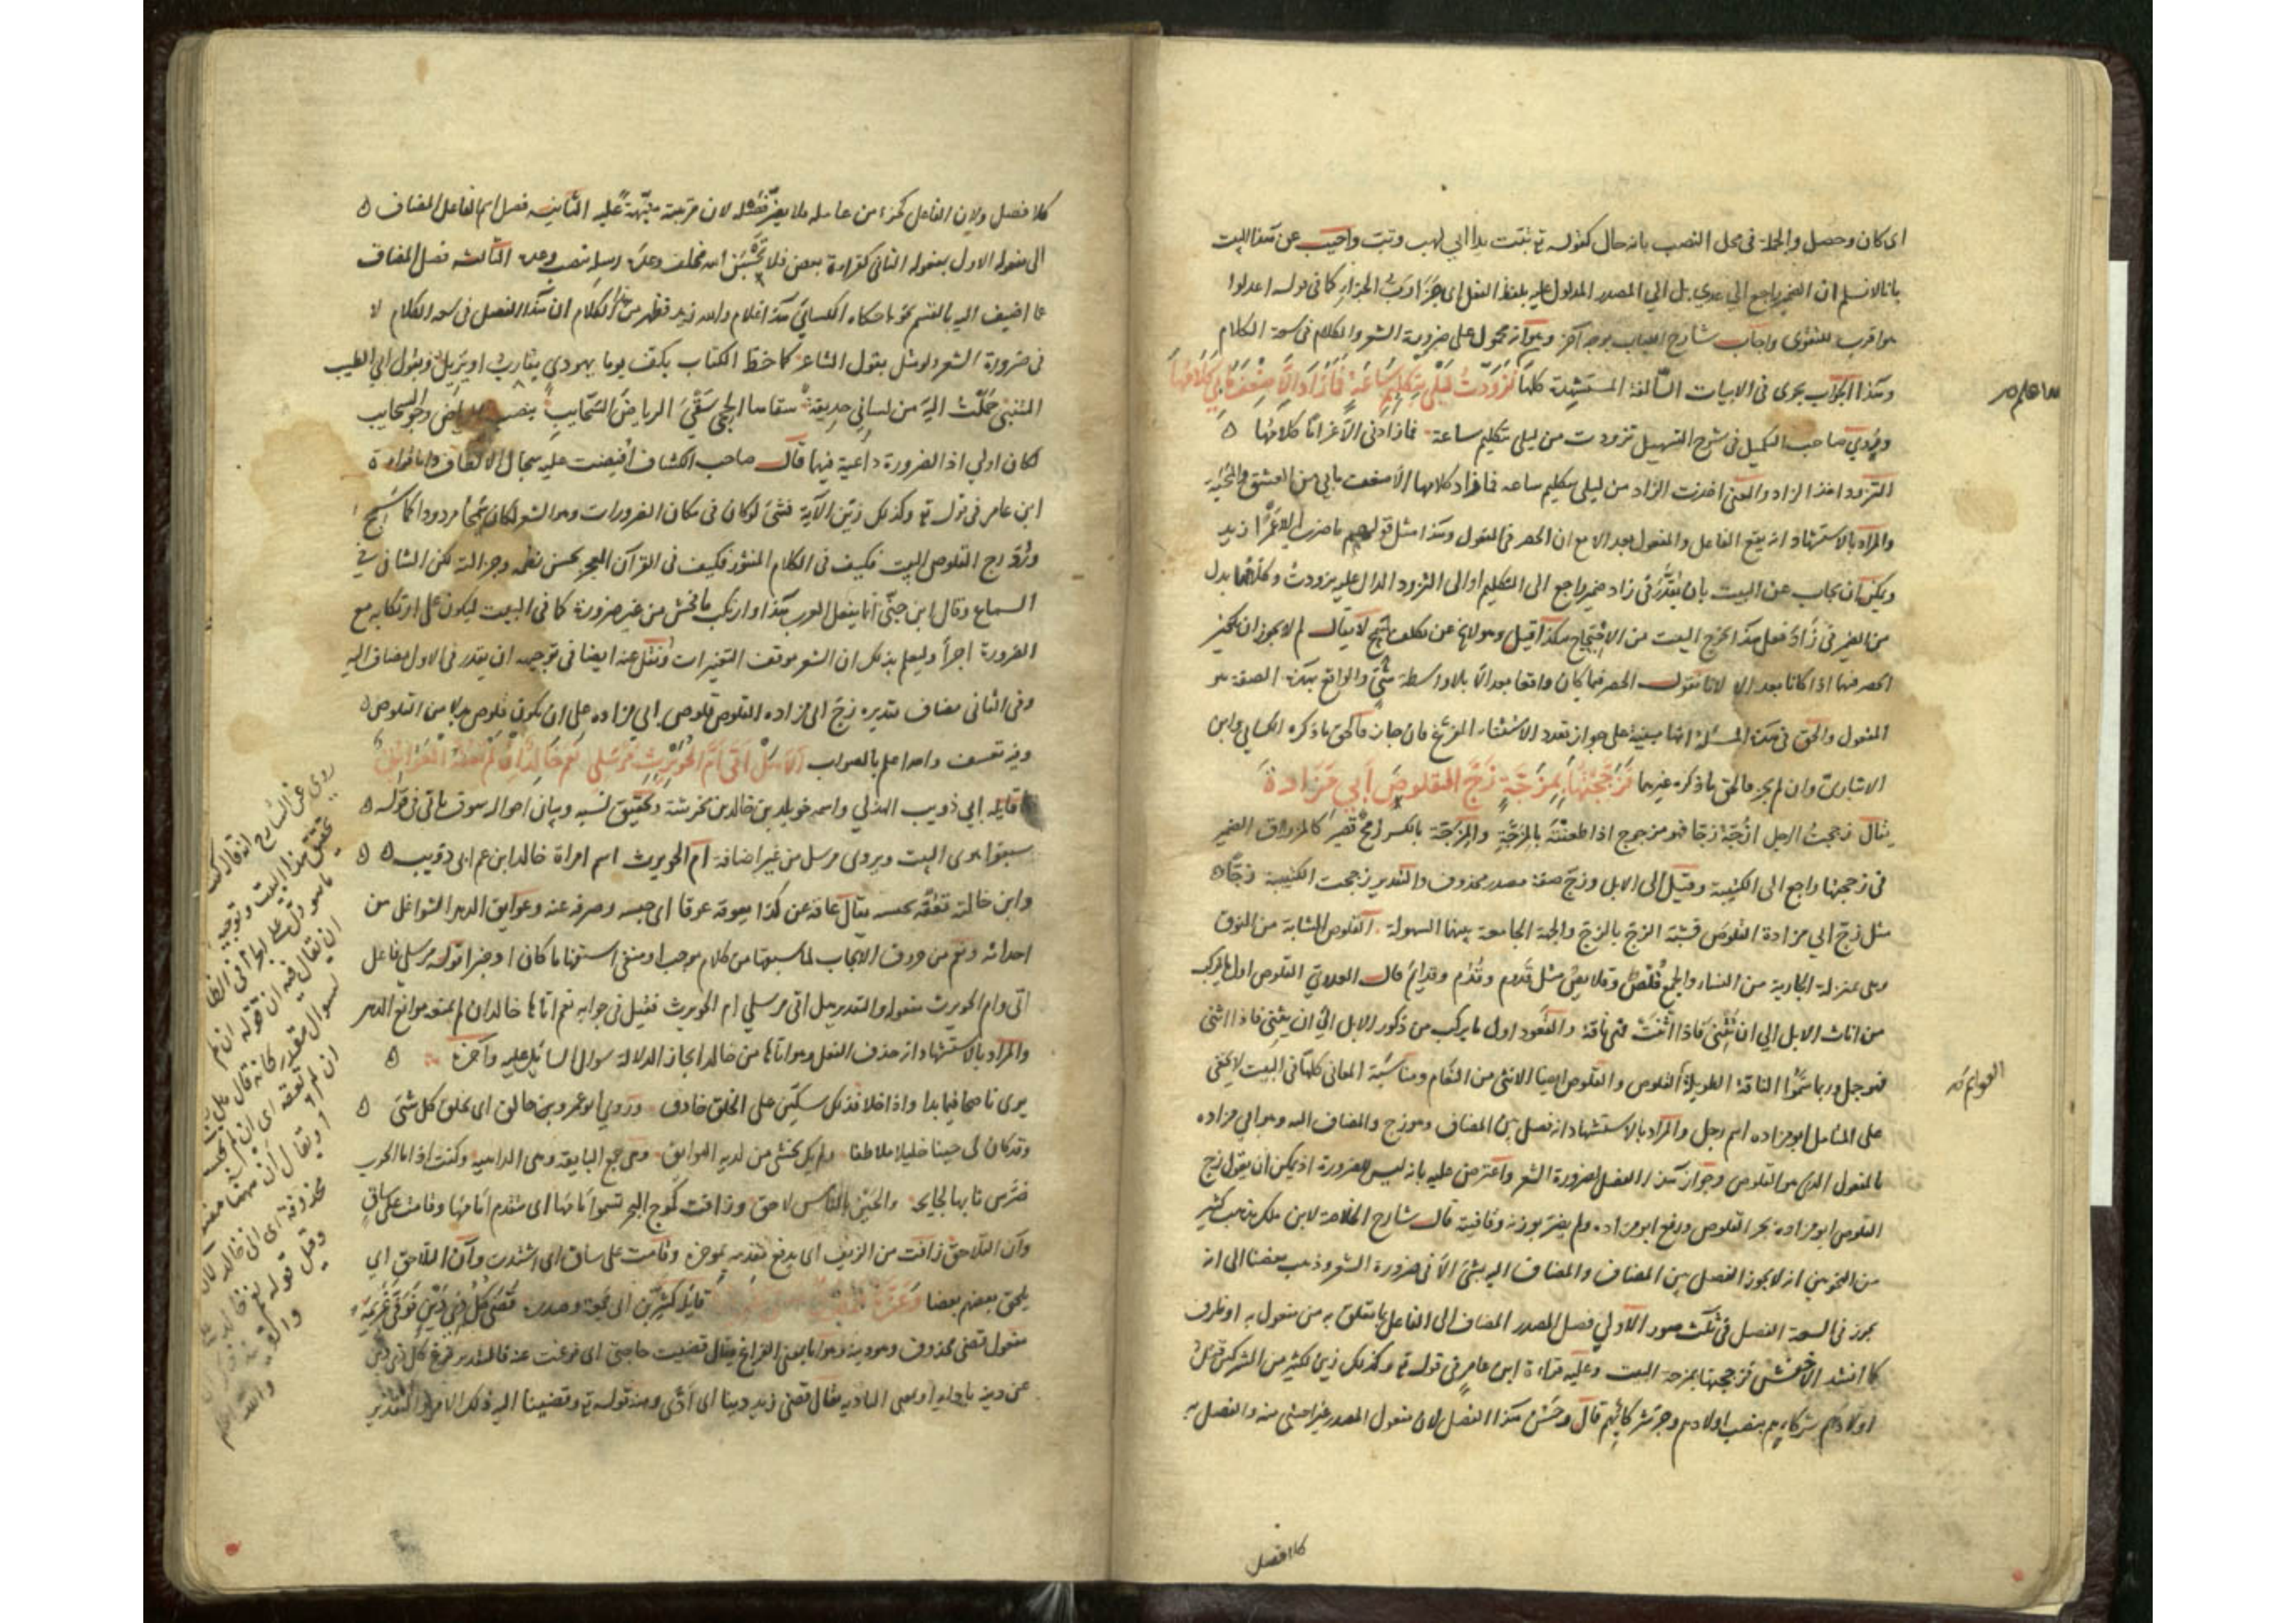 اى كان وحصل والجملة فى محل النصب بانه حال كقوله تع تبت يدا ابى لهب وتب واجيب عن هذا البيت
بانا لا نسلم ان الضمير راجع الى عدى بل الى المصدر المدلول عليه بلفظ الفعل اى جزا رب الجزاء كما فى قوله اعدلوا
هو اقرب للتقوى واجاب شارح اللباب بوجه آخر وهو انه محمول على ضرورة الشعر والكلام فى سعة الكلام
وهذا الجواب يجرى فى الابيات السالفة المستشهدة كلها تَزَوَّدْتُ مِنْ لَيْلَى بِتَكْلِيمِ سَاعَةٍ فَمَا زَادَ اِلَّا ضِعْفَ مَا بِي كَلَامُهَا
ويروى صاحب التكميل فى شرح التسهيل تزودت من ليلى بتكليم ساعة فما زادنى الا غراما كلامها
التزود اخذ الزاد والمعنى اخذت الزاد من ليلى بتكليم ساعه فما زاد كلامها الا ضعف ما بى من العشق والمحبة
والمراد بالاستشهاد انه يقع الفاعل والمفعول بعد الا مع ان الحصر فى المفعول وهذا مثل قولهم ما ضرب الا عمرا زيد
ويمكن ان يجاب عن البيت بان يقدر فى زاد ضمير راجع الى التكليم او الى التزود الدال عليه تزودت وكلامها بدل
من الضمير فى زاد فعلى هذا يخرج البيت من الاحتجاج هكذا قيل وهو لا يخ عن تكلف لا يقال لم لا يجوز ان يكون
الحصر فيهما اذا كانا بعد الا لانا نقول الحصر فيما كان واقعا بعد الا بلا واسطة شئ والواقع بهذه الصفة هو
المفعول والحق فى هذه المسئلة انها مبنية على جواز تعدد الاستثناء المفرغ فان جاز فالحق ما ذكره الكسائى وابن
الانبارى وان لم يجز فالحق ما ذكره غيرهما فَزَجَجْتُهَا بِمِزَجَّةٍ زَجَّ القَلُوصَ أَبِي مَزَادَةَ
يقال زججت الرجل ازجه زجا فهو مزجوج اذا طعنته بالمزجة والمزجة بالكسر رمح قصير كالمزراق الضمير
فى زججتها راجع الى الكتيبة وقيل الى الابل وزج صفة مصدر محذوف والتقدير زججت الكتيبة زجا
مثل زج ابى مزادة القلوص فشبه الزج بالزج والجهة الجامعة بينهما السهولة القلوص الشابة من النوق
وهى بمنزلة الجارية من النساء والجمع قلص وقلايص مثل قدوم وقدم وقدايم قال العدوى القلوص اول ما يركب
من اناث الابل الى ان تثنى فاذا اثنت فهى ناقة والقعود اول ما يركب من ذكور الابل الى ان يثنى فاذا اثنى
فهو جمل وربما سموا الناقة الطويلة القوايم القلوص والقلوص ايضا الانثى من النعام ومناسبة المعانى كلها فى البيت لا يخفى
على المتامل ابو مزاده اسم رجل والمراد بالاستشهاد انه فصل بين المضاف وهو زج والمضاف اليه وهو ابى مزاده
بالمفعول الذى هو القلوص وجواز هذا الفصل لضرورة الشعر واعترض عليه بانه ليس للضرورة اذ يمكن ان يقول زج
القلوص ابو مزاده بجر القلوص ورفع ابو مزاده ولم يضر بوزنه وقافيته قال شارح الخلاصة لابن ملك مذهب كثير
من النحويين انه لا يجوز الفصل بين المضاف والمضاف اليه بشئ الا فى ضرورة الشعر وذهب بعضنا الى انه
يجوز فى السعة الفصل فى ثلث صور الاولى فصل المصدر المضاف الى الفاعل بما يتعلق به من مفعول به او ظرف
كما انشد الاخفش فزججتها بمزجة البيت وعليه قراءة ابن عامر فى قوله تع وكذلك زين لكثير من المشركين قتل
اولادهم شركائهم بنصب اولادهم وجر شركائهم قال وحسن هذا الفصل لان مفعول المصدر غير اجنبى منه والفصل به
كلا فصل
القوايم
كلا فصل ولان الفاعل كجزء من عامله فلا يضر فصله لان مرتبته منبهة عليه الثانيه فصل اسم الفاعل المضاف
الى مفعوله الاول بمفعوله الثانى كقراءة بعض فلا تحسبن الله مخلف وعده رسله بنصب وعده الثالثه فصل المضاف
عما اضيف اليه بالقسم نحو ما حكاه الكسائى هذا غلام والله زيد فظهر من هذا الكلام ان هذا الفصل فى سعة الكلام لا
فى ضرورة الشعر ولو مثل بقول الشاعر كما خط الكتاب بكف يوما يهودي يقارب او يزيل وبقول ابى الطيب
المتنبى حملت اليه من لسانى حديقة سقاها الحجى سقى الرياض السحايب بنصب الرياض وجر السحايب
لكان اولى اذ الضرورة داعية فيهما قال صاحب الكشاف افيضت عليه سجال الالطاف واما قراءة
ابن عامر فى قوله تع وكذلك زين الآية فشئ لو كان فى مكان الضرورات وهو الشعر لكان سمجا مردودا كما سمج
ورد زج القلوص البيت فكيف فى الكلام المنثور فكيف فى القرآن المعجز بحسن نظمه وجزالته لكن الشافى فى
السماع وقال ابن جنى انما يفعل العرب هذا وارتكب ما فحش من غير ضرورة كما فى البيت ليكون على ارتكابه مع
الضرورة اجرأ وليعلم بذلك ان الشعر موقف التغيرات ونقل عنه ايضا فى توجيهه ان يقدر فى الاول مضاف اليه
وفى الثانى مضاف تقديره زج ابى مزاده القلوص قلوص ابى مزاده على ان يكون قلوص بدلا من القلوص
وفيه تعسف والله اعلم بالصواب اَلَا هَلْ اَتَى اُمَّ الحُوَيْرِثِ مُرْسَلِي نَعَمْ خَالِدٌ اِنْ لَمْ تَعُقْهُ العَوَائِقُ
قايله ابى ذويب الهذلى واسمه خويلد بن خالد بن محرث وتحقيق نسبه وبيان احواله سوف ياتى فى قوله
سبقوا هوى البيت ويروى مرسل من غير اضافة ام الحويرث اسم امراة خالد ابن عم ابى ذويب
وابن خالته تعقه تحبسه يقال عاقه عن كذا يعوقه عوقا اى حبسه وصرفه عنه وعوايق الدهر الشواغل من
احداثه ونعم من حروف الايجاب لما سبقها من كلام موجب او منفى استفهاما كان او خبرا قوله مرسلى فاعل
اتى وام الحويرث مفعوله والتقدير هل اتى مرسلى ام الحويرث فقيل فى جوابه نعم اتاها خالد ان لم يمنعه موانع الدهر
والمراد بالاستشهاد انه حذف الفعل وهو اتاها من خالد ايجازا لدلالة سوال السائل عليه وآخره
يرى ناصحا فيما بدا واذا خلا فذلك سكين على الحلق حاذق وروى ابو عمرو بن حالق اى يحلق كل شئ
وقد كان لى حينا خليلا ملاطفا ولم يك يخشى من لديه البوايق وهى جمع البايقة وهى الداهيه وكنت اذا ما الحرب
ضرس نابها لجايحة والحين بالناس لاحق وزافت كموج البحر تسمو امامها اى متقدم امامها وقامت على ساق
وآن التلاحق زافت من الزيف اى يدفع مقدمه بموخره وقامت على ساق اى اشتدت وآن التلاحق اى
يلحق بعضهم بعضا قايله كثير بن ابى جمعة وصدره قضى كل ذى دين فوفى غريمه
مفعول قضى محذوف وهو دينه وهو اما بمعنى الفراغ يقال قضيت حاجتى اى فرغت عنه فالتقدير فرغ كل ذى دين
عن دينه بادايه او بمعنى التاديه يقال قضى زيد دينا اى ادى ومنه قوله تع وقضينا اليه ذلك الامر والتقدير